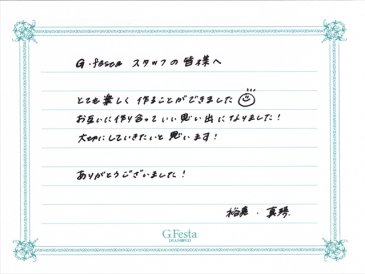 G.festa スタッフの皆様へ
とても楽しく作ることができました
お互いに作り合っていい思い出になりました!
大切にしていきたいと思います!
ありがとうございました!
G.Festa